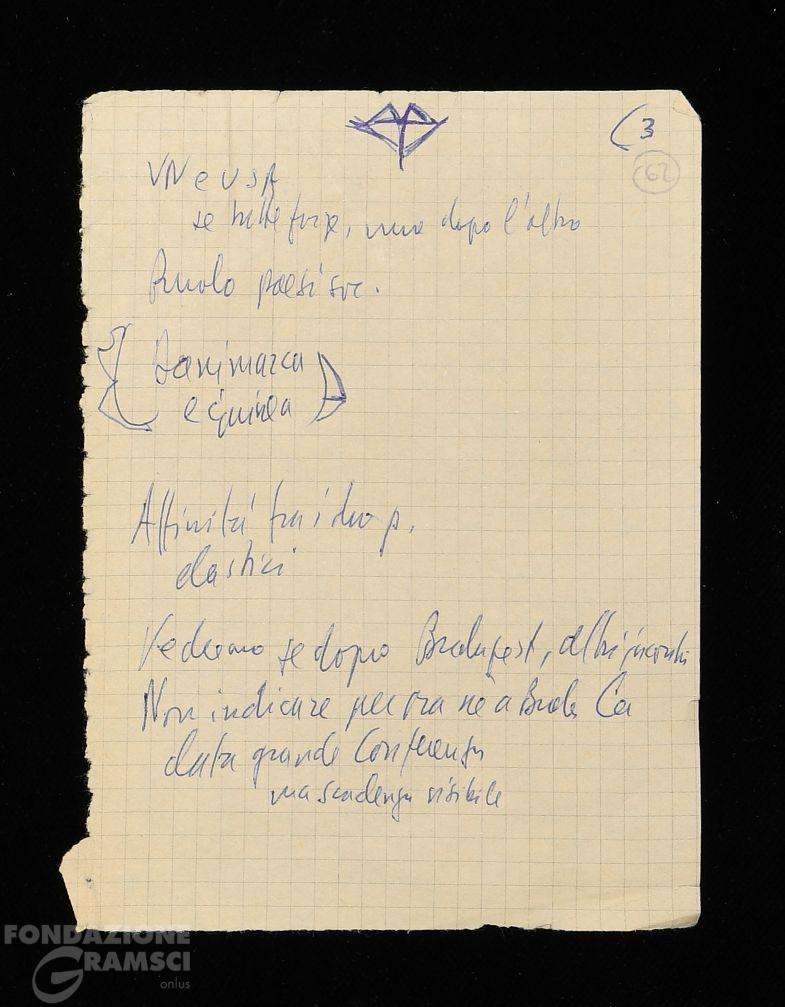 (3
62
VN e USA
se tutte forze, una dopo l'altra
Ruolo paesi soc.
Danimarca
e Guinea
Affinità fra i due p.
elastici
Vediamo se dopo Budapest, altri incontri
Non indicare per ora nè a Buda
data grande Conferenza
ma scadenza visibile
FONDAZIONE
GRAMSCI
onlus